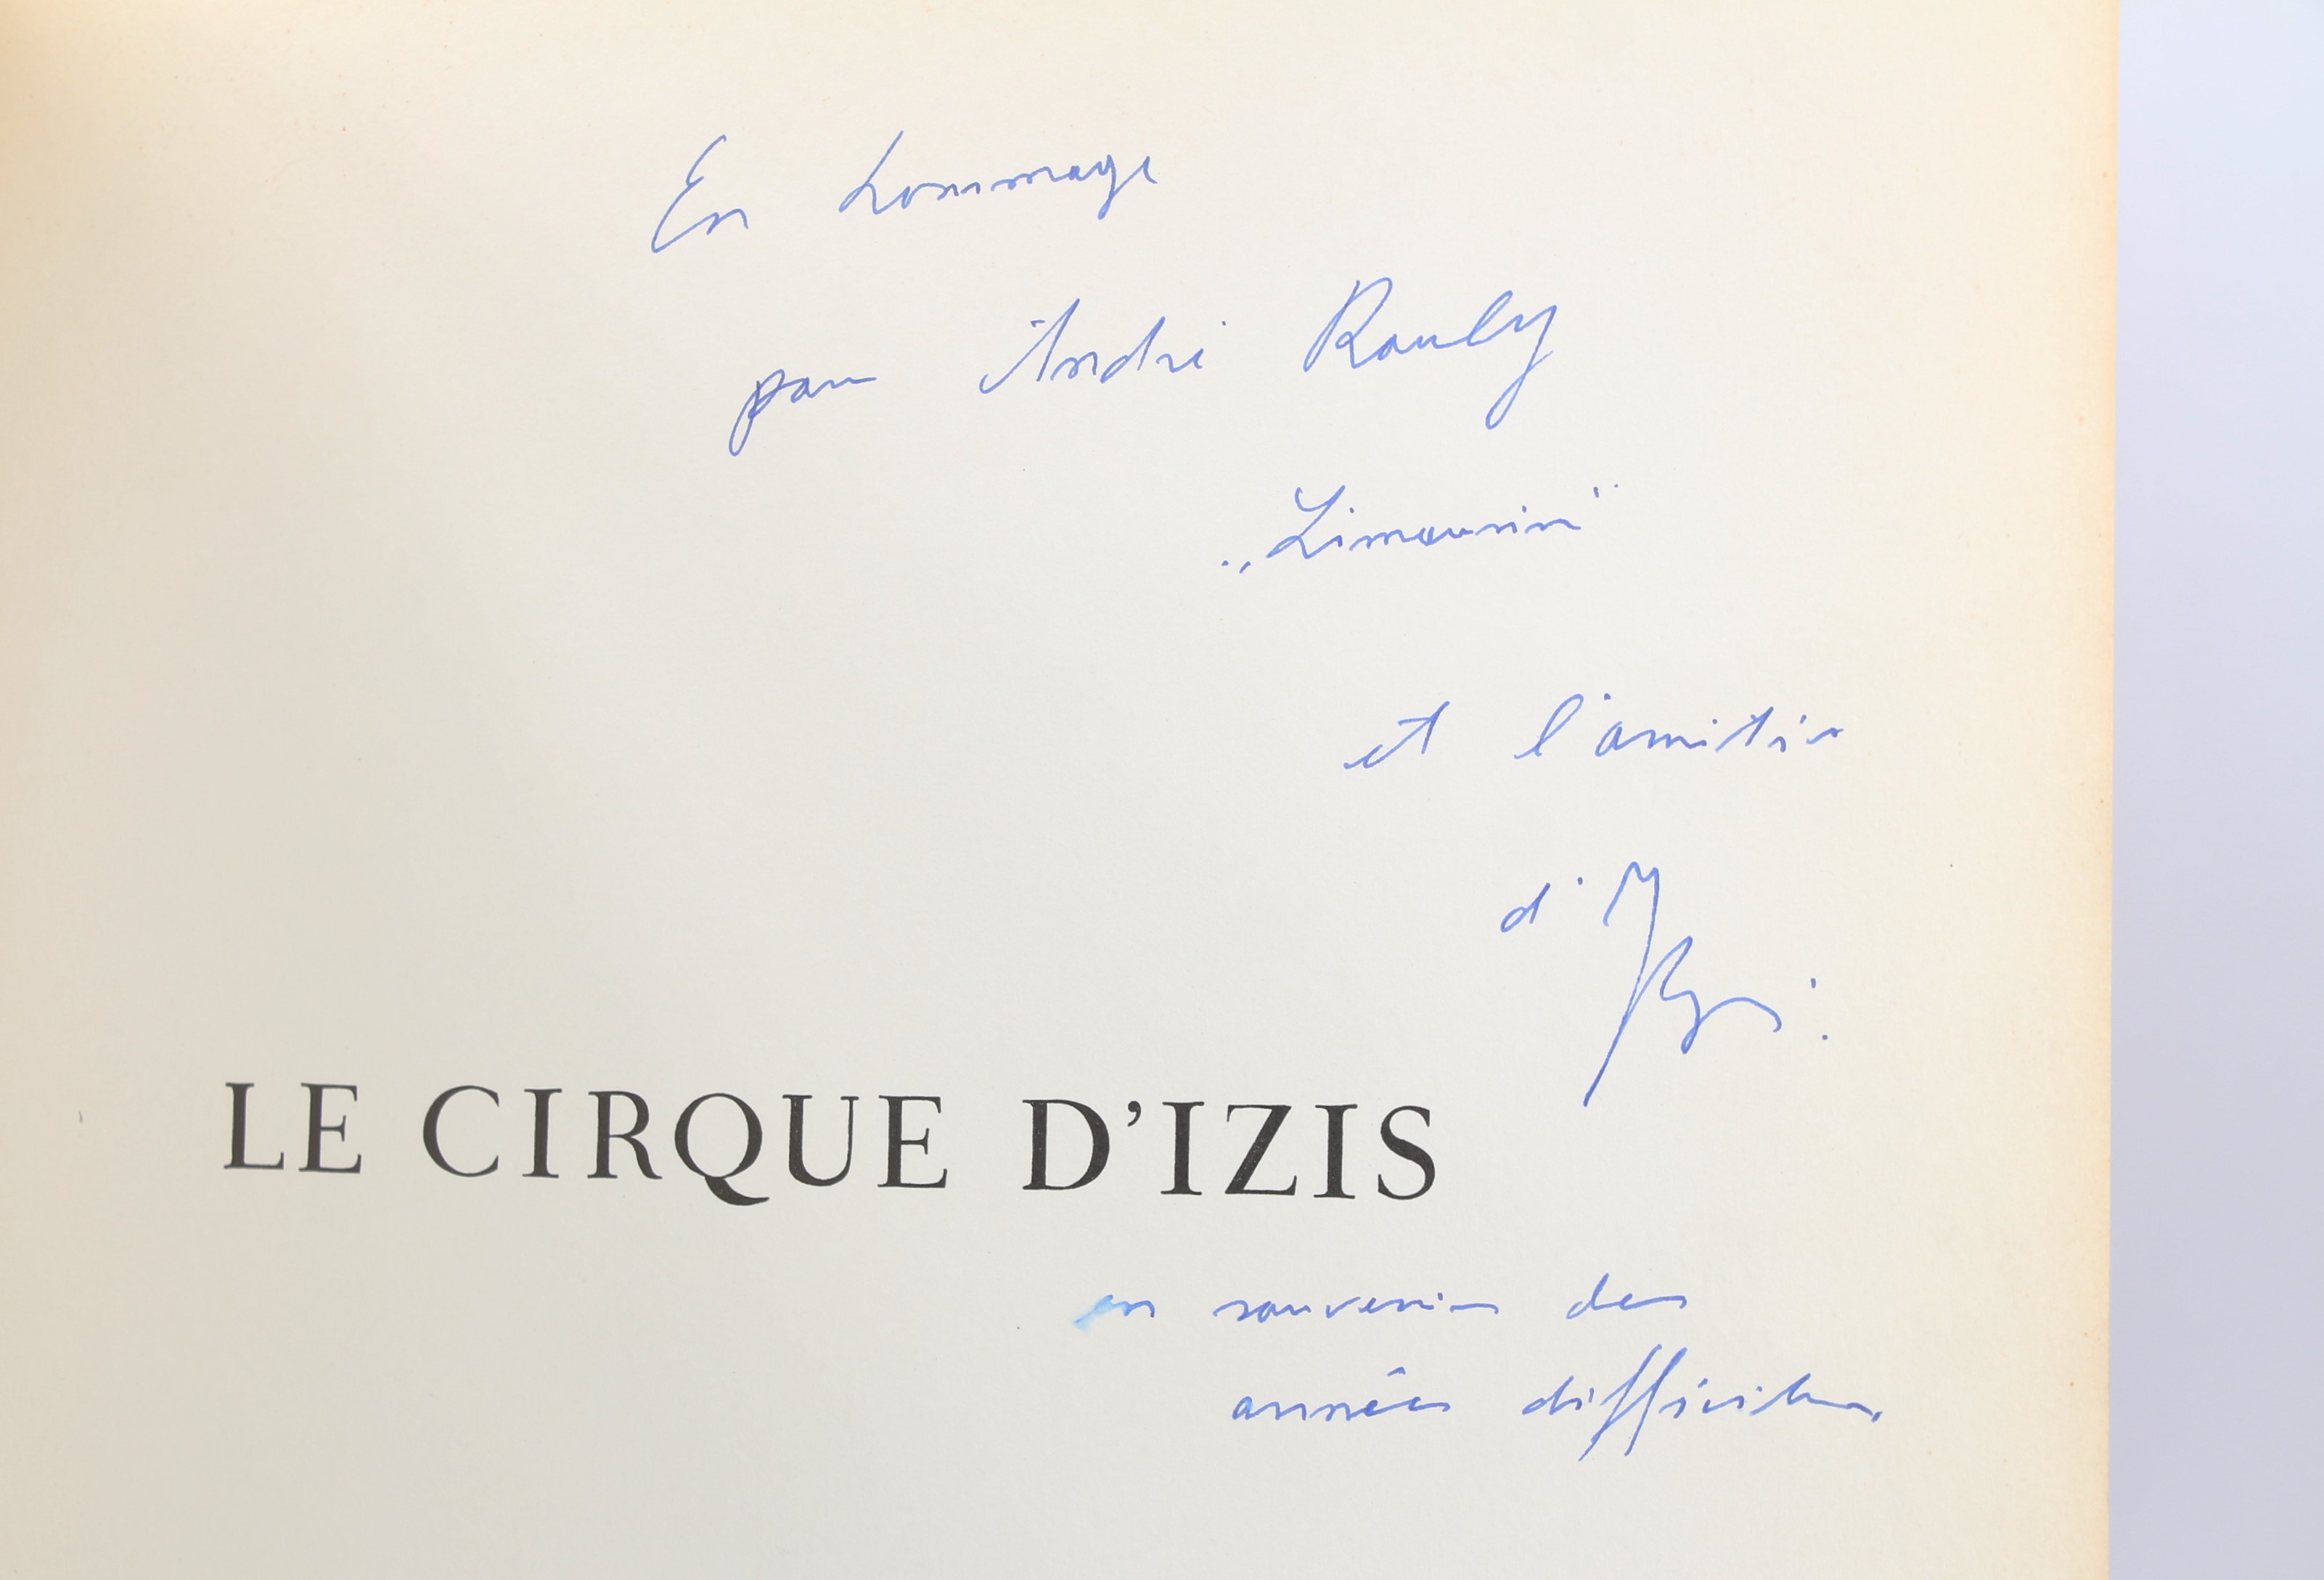 En hommage
pour André Rouly
„Limousin"
et l'amitié
d'Izis.
LE CIRQUE D'IZIS
en souvenir des
années difficiles.